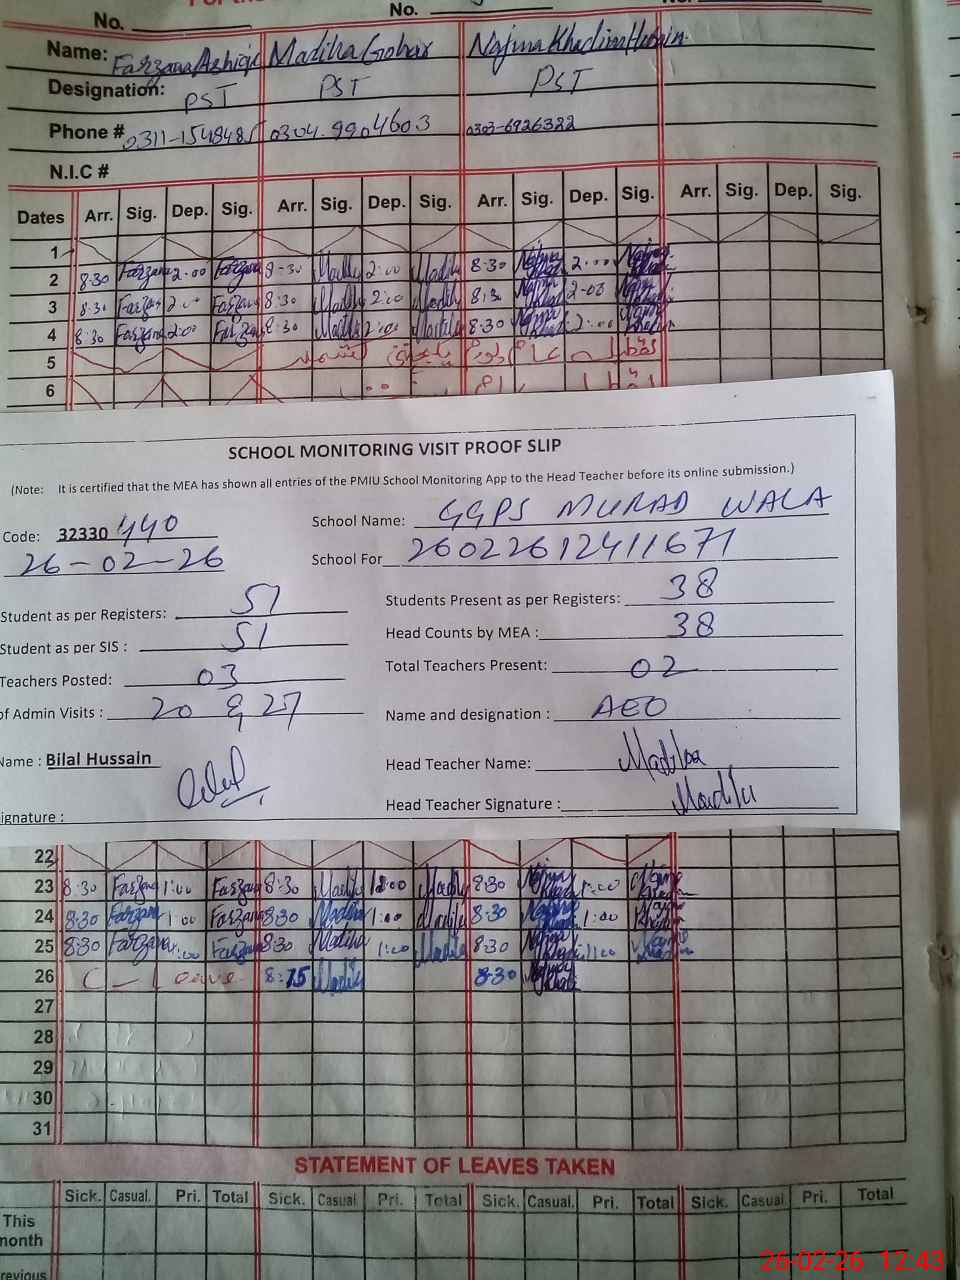 No. No.
Name: Farzana Ashiq Madiha Gohar Najma Khadim Hussain
Designation: PST PST PST
Phone # 0311-1548485 0304-9904603 0303-6926322
N.I.C #
Dates Arr. Sig. Dep. Sig. Arr. Sig. Dep. Sig. Arr. Sig. Dep. Sig. Arr. Sig. Dep. Sig.
1
2 8:30 Farzana 2:00 Farzana 8:30 Madiha 2:00 Madiha 8:30 Najma Khadim 2:00 Najma Khadim
3 8:30 Farzana 2:00 Farzana 8:30 Madiha 2:00 Madiha 8:30 Najma Khadim 2:00 Najma Khadim
4 8:30 Farzana 2:00 Farzana 8:30 Madiha 2:00 Madiha 8:30 Najma Khadim 2:00 Najma Khadim
5 تعطیل عام یوم یکجہتی کشمیر
6
SCHOOL MONITORING VISIT PROOF SLIP
(Note: It is certified that the MEA has shown all entries of the PMIU School Monitoring App to the Head Teacher before its online submission.)
Code: 32330 440 School Name: GGPS MURAD WALA
26-02-26 School For 26022612411671
Student as per Registers: 51 Students Present as per Registers: 38
Student as per SIS : 51 Head Counts by MEA : 38
Teachers Posted: 03 Total Teachers Present: 02
of Admin Visits : 20 & 27 Name and designation : AEO
Name : Bilal Hussain Head Teacher Name: Madiha
ignature : Head Teacher Signature : Madiha
22
23 8:30 Farzana 1:00 Farzana 8:30 Madiha 1:00 Madiha 8:30 Najma Khadim 1:00 Najma Khadim
24 8:30 Farzana 1:00 Farzana 8:30 Madiha 1:00 Madiha 8:30 Najma Khadim 1:00 Najma Khadim
25 8:30 Farzana 1:00 Farzana 8:30 Madiha 1:00 Madiha 8:30 Najma Khadim 1:00 Najma Khadim
26 C-Leave 8:15 Madiha 8:30 Najma Khadim
27
28
29
30
31
STATEMENT OF LEAVES TAKEN
Sick. Casual. Pri. Total Sick. Casual Pri. Total Sick. Casual. Pri. Total Sick. Casual. Pri. Total
This month
revious
26-02-26 12:43